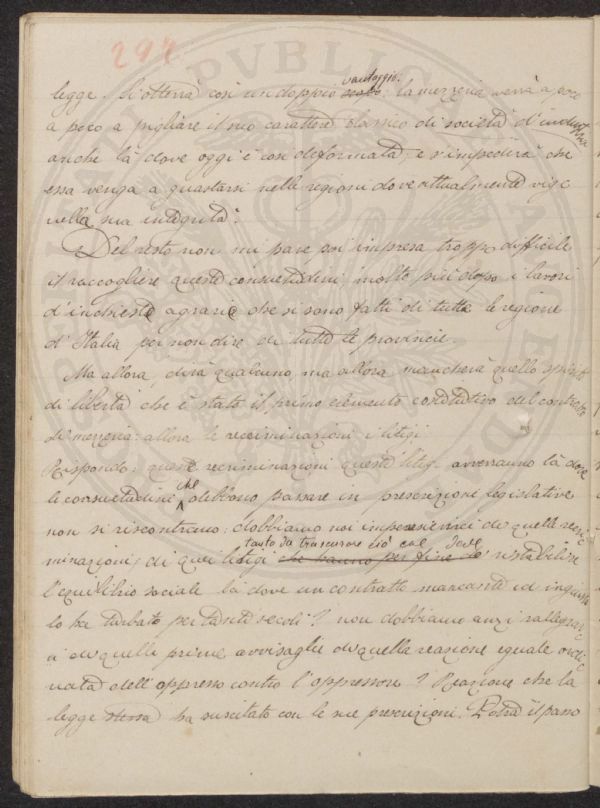 294
legge. Si otterrà così un doppio scopo vantaggio: la mezzeria verrà a poco
a poco a pigliare il suo carattere classico di società d'industria
anche là dove oggi è così deformata, e s'impedirà che
essa venga a guastarsi nelle regioni dove attualmente vige
nella sua integrità.
Del resto non mi pare poi impresa troppo difficile
il raccogliere queste consuetudini, molto più dopo i lavori
d'inchiesta agraria che si sono fatti di tutte le regione
d'Italia per non dire di tutte le provincie.
Ma allora, dirà qualcuno, ma allora mancherà quello spirito
di libertà che è stato il primo elemento costitutivo del contratto
di mezzeria: allora le recriminazioni i litigi
Rispondo: queste recriminazioni questi litigi avverranno là dove
le consuetudini che debbono passare in prescrizione legislative
non si riscontrano: dobbiamo noi impensierirci di quelle recri-
minazioni, di quei litigi che hanno per fine di tanto da trascurare ciò che deve ristabilire
l'equilibrio sociale là dove un contratto mancante ed ingiusto
lo ha turbato per tanti secoli? non dobbiamo anzi rallegrar-
ci di quelle prime avvisaglie di quella reazione eguale ordi-
nata dell'oppresso contro l'oppressore? Reazione che la
legge stessa ha suscitato con le sue prescrizioni. Potrà il passo